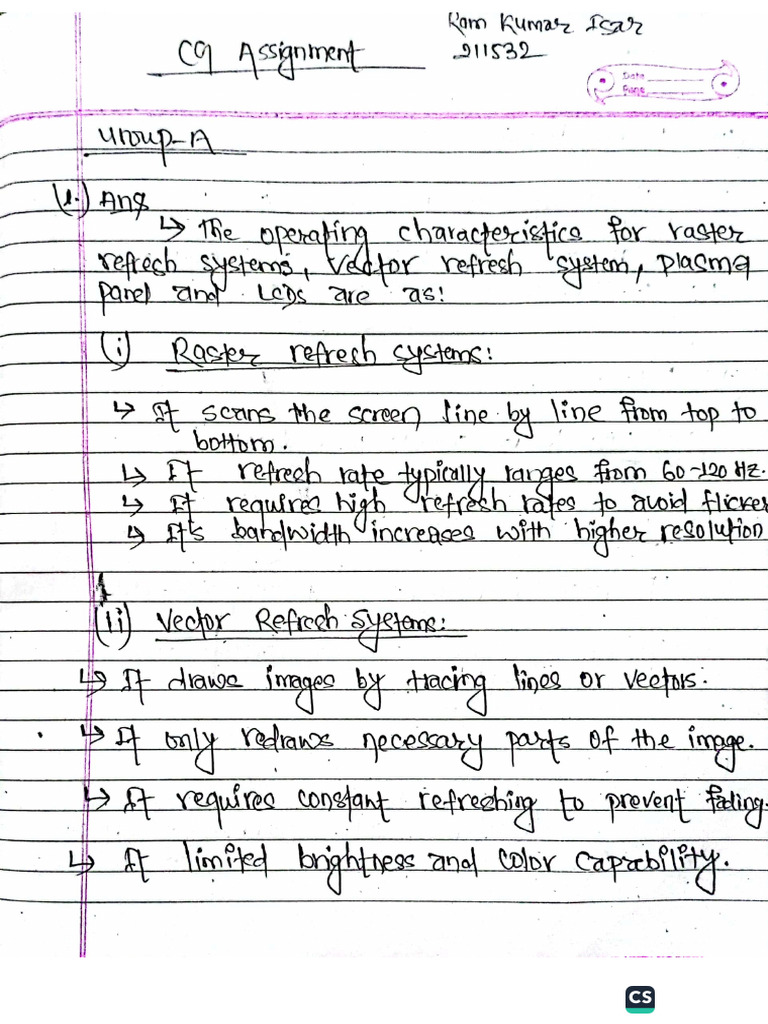 Ram Kumar Isar
CG Assignment
211532
Date
Page
Group-A
(1.) Ans
↳ The operating characteristics for raster
refrech systems, Vector refresh system, plasma
panel and LCDs are as:
(i) Raster refresh systems:
↳ It scans the screen line by line from top to
bottom.
↳ It refrech rate typically ranges from 60-120 Hz.
↳ It requires high refresh rates to avoid flicker
↳ It's bandwidth increases with higher resolution
(ii) Vector Refresh Systems:
↳ It draws images by tracing lines or vectors.
↳ It only redraws necessary parts of the image.
↳ It requires constant refreshing to prevent fading.
↳ It limited brightness and color capability.
CS